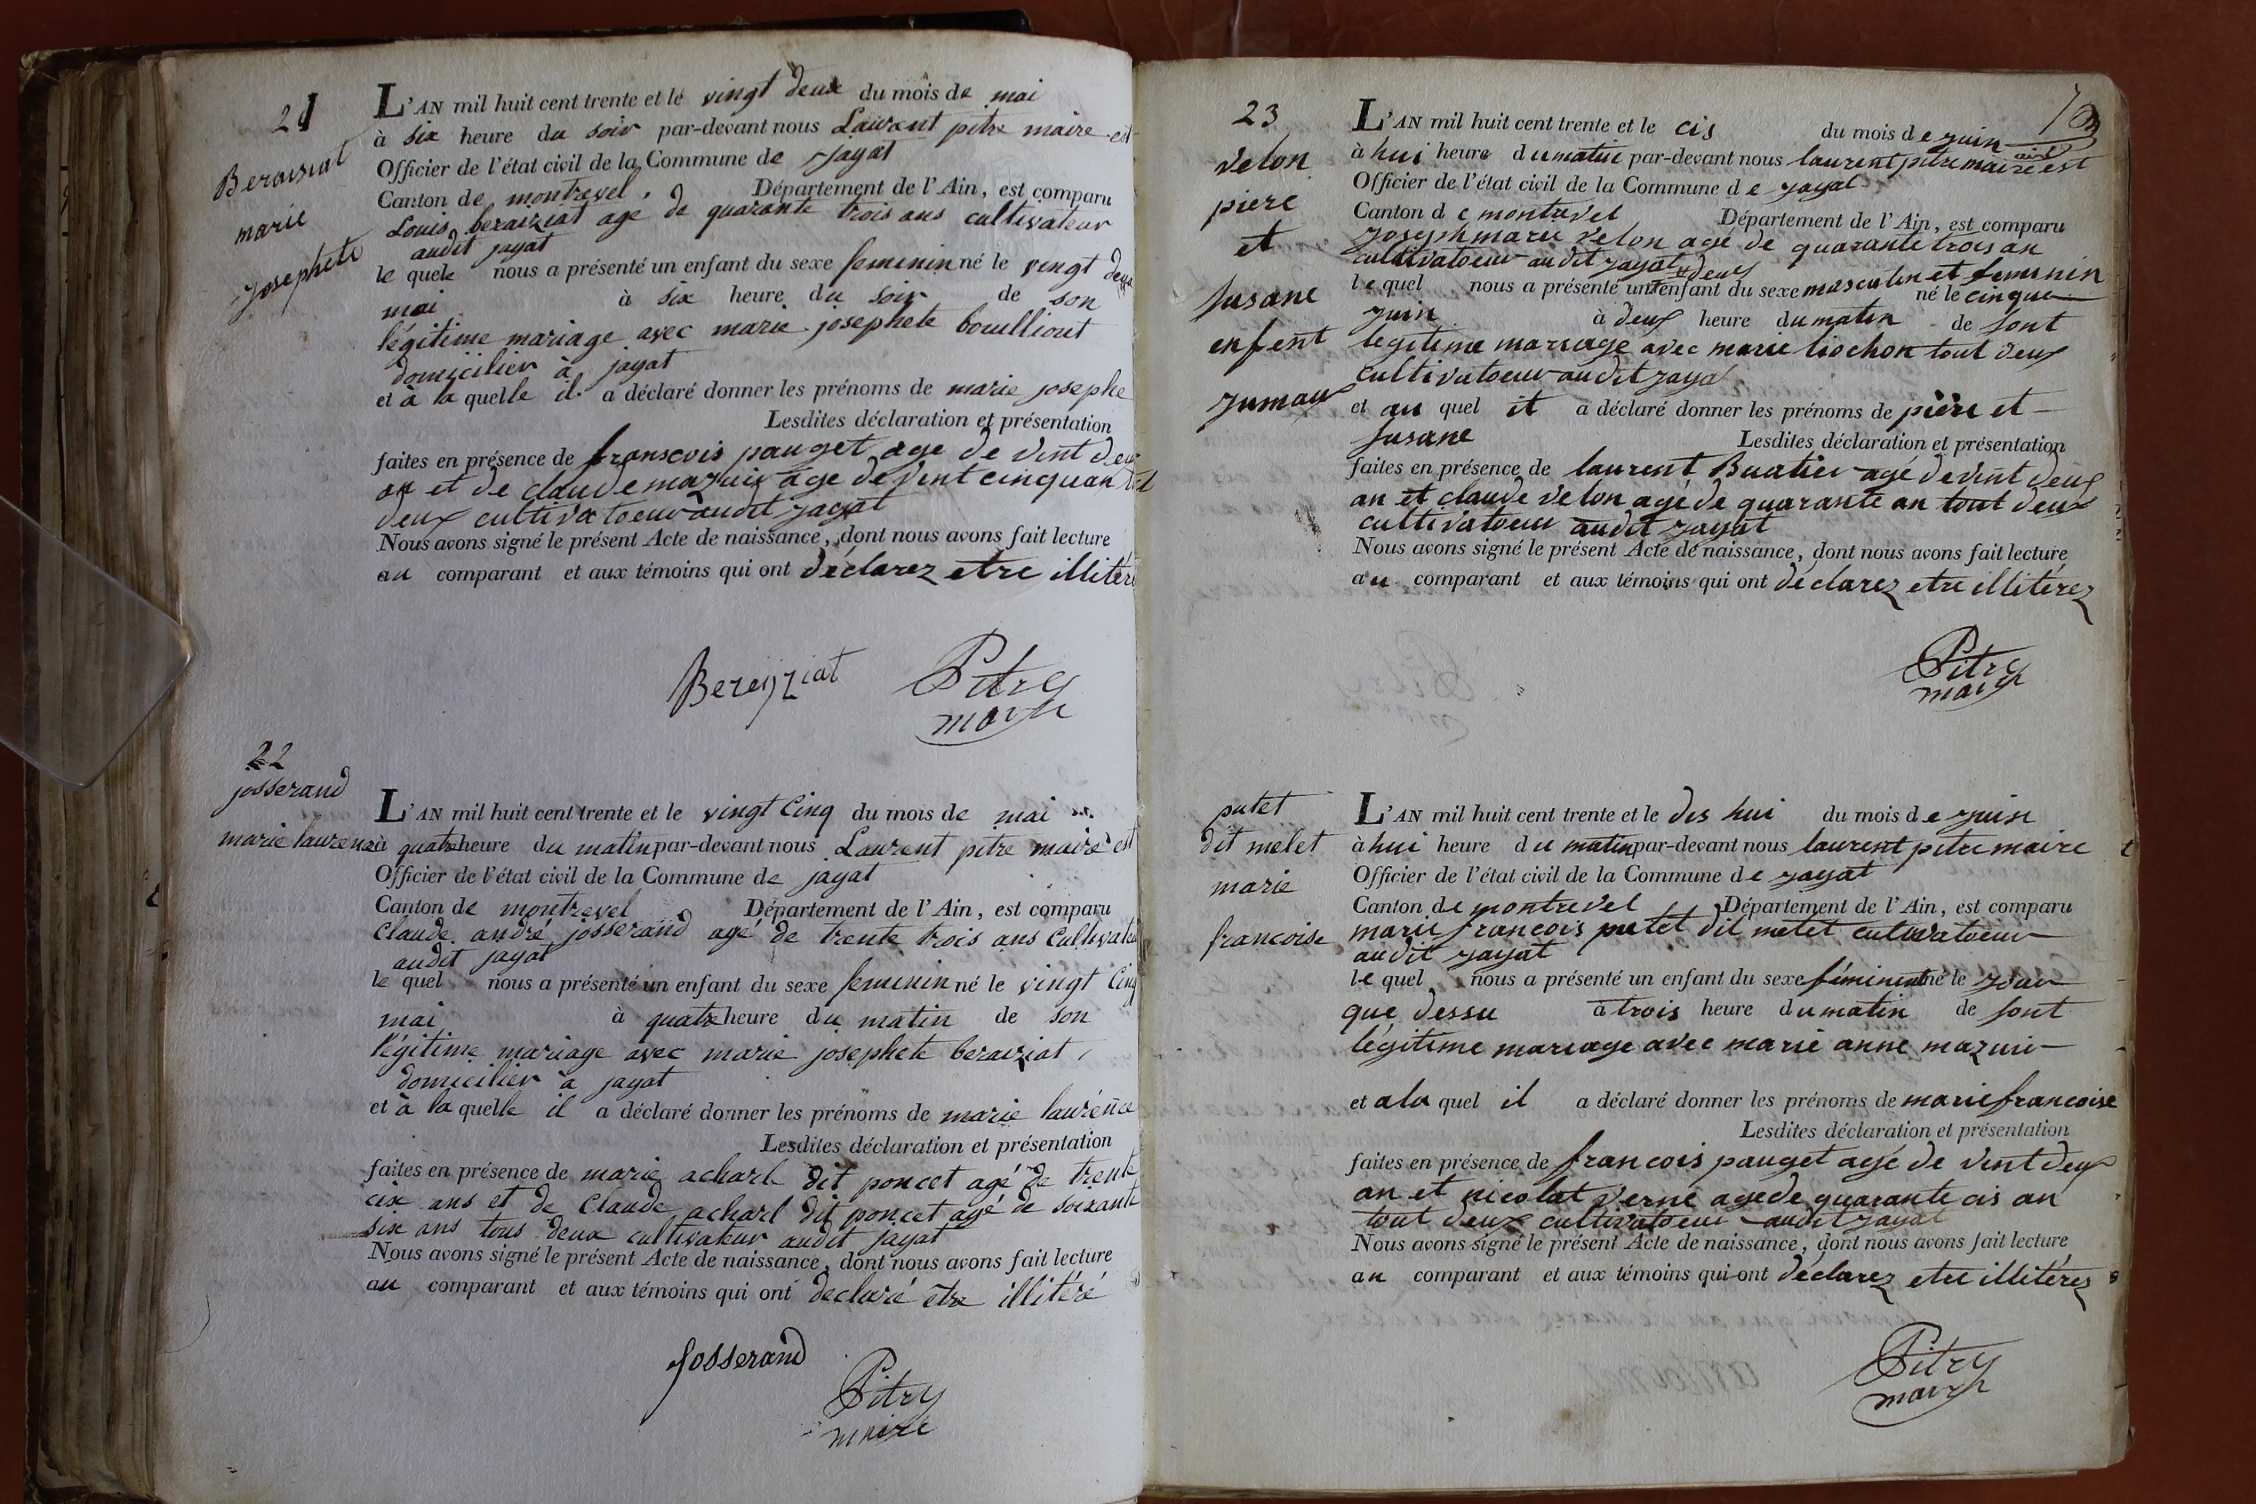 21
Beraiziat
marie
josephete
L'AN mil huit cent trente et le vingt deux du mois de mai
à six heure du soir par-devant nous Laurent pitre maire est
Officier de l'état civil de la Commune de jayat
Canton de montrevel. Département de l'Ain, est comparu
Louis beraiziat age de quarante trois ans cultivateur
audit jayat
le quele nous a présenté un enfant du sexe feminin né le vingt deux
mai à six heure du soir de son
légitime mariage avec marie josephete bouilliout
domicilier à jayat
et à la quelle il a déclaré donner les prénoms de marie josephe
Lesdites déclaration et présentation
faites en présence de franscois pauget age de vint deux
an et de claude mazuir age de vint cinq uan tout
deux cultivatoeur audit jayat
Nous avons signé le présent Acte de naissance, dont nous avons fait lecture
au comparant et aux témoins qui ont déclarez etre illitéré
Bereyziat Pitre
maire
22
josserand
marie laurence
L'AN mil huit cent trente et le vingt Cinq du mois de mai
à quatre heure du matin par-devant nous Laurent pitre maire est
Officier de l'état civil de la Commune de jayat
Canton de montrevel Département de l'Ain, est comparu
Claude andré josserand agé de trente trois ans Cultivateur
audit jayat
le quel nous a présenté un enfant du sexe feminin né le vingt Cinq
mai à quatre heure du matin de son
légitime mariage avec marie josephete beraiziat
domicilier à jayat
et à la quelle il a déclaré donner les prénoms de marie laurence
Lesdites déclaration et présentation
faites en présence de marie acharl dit poncet agé de trente
cix ans et de Claude acharl dit poncet agé de soixante
six ans tous deux cultivateur audit jayat
Nous avons signé le présent Acte de naissance, dont nous avons fait lecture
au comparant et aux témoins qui ont declaré etre illitéré
Josserand
Pitre
maire
23
velon
piere
et
susane
enfent
jumaux
L'AN mil huit cent trente et le cis du mois de juin
à hui heure du matin par-devant nous laurent pitre maire est
Officier de l'état civil de la Commune de jayat
Canton de montrevel Département de l'Ain, est comparu
joseph marie velon agé de quarante trois an
cultivatoeur audit jayat
deux
le quel nous a présenté un enfant du sexe masculin et feminin
né le cinque
juin à deux heure du matin de sont
legitime mariage avec marie liochon tout deux
cultivatoeur audit jayat
et au quel il a déclaré donner les prénoms de pière et
susane Lesdites déclaration et présentation
faites en présence de laurent Buatier agé de vint deux
an et claude velon agé de quarante an tout deux
cultivatoeur audit jayat
Nous avons signé le présent Acte de naissance, dont nous avons fait lecture
au comparant et aux témoins qui ont déclarez etre illitérez
Pitre
maire
putet
dit melet
marie
francoise
L'AN mil huit cent trente et le dis hui du mois de juin
à hui heure du matin par-devant nous laurent pitre maire
Officier de l'état civil de la Commune de jayat
Canton de montrevel Département de l'Ain, est comparu
marie francois putet dit metet cultivatoeur
audit jayat
le quel nous a présenté un enfant du sexe féminent né le jour
que dessu à trois heure du matin de sont
légitime mariage avec marie anne mazuir
et a la quel il a déclaré donner les prénoms de marie francoise
Lesdites déclaration et présentation
faites en présence de francois pauget agé de vint deux
an et nicolat verne age de quarante cis an
tout deux cultivatoeur audit jayat
Nous avons signé le présent Acte de naissance, dont nous avons fait lecture
au comparant et aux témoins qui ont déclarez etre illitérez
Pitre
maire